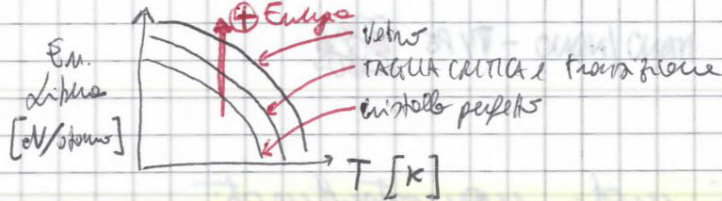 ⊕ Energia
En.
Libera
[eV/atomo]
vetro
TAGLIA CRITICA e transizione
cristallo perfetto
T [K]